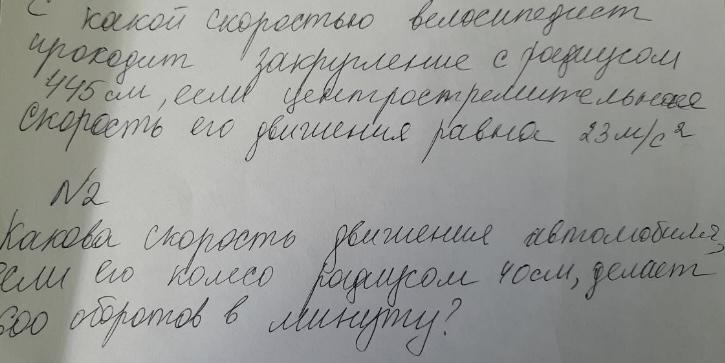 С какой скоростью велосипедист
проходит закругление с радиусом
445 см, если центростремительное
скорость его движения равна 23 м/с²
N2
Какова скорость движения автомобиля,
если его колесо радиусом 40см, делает
600 оборотов в минуту?